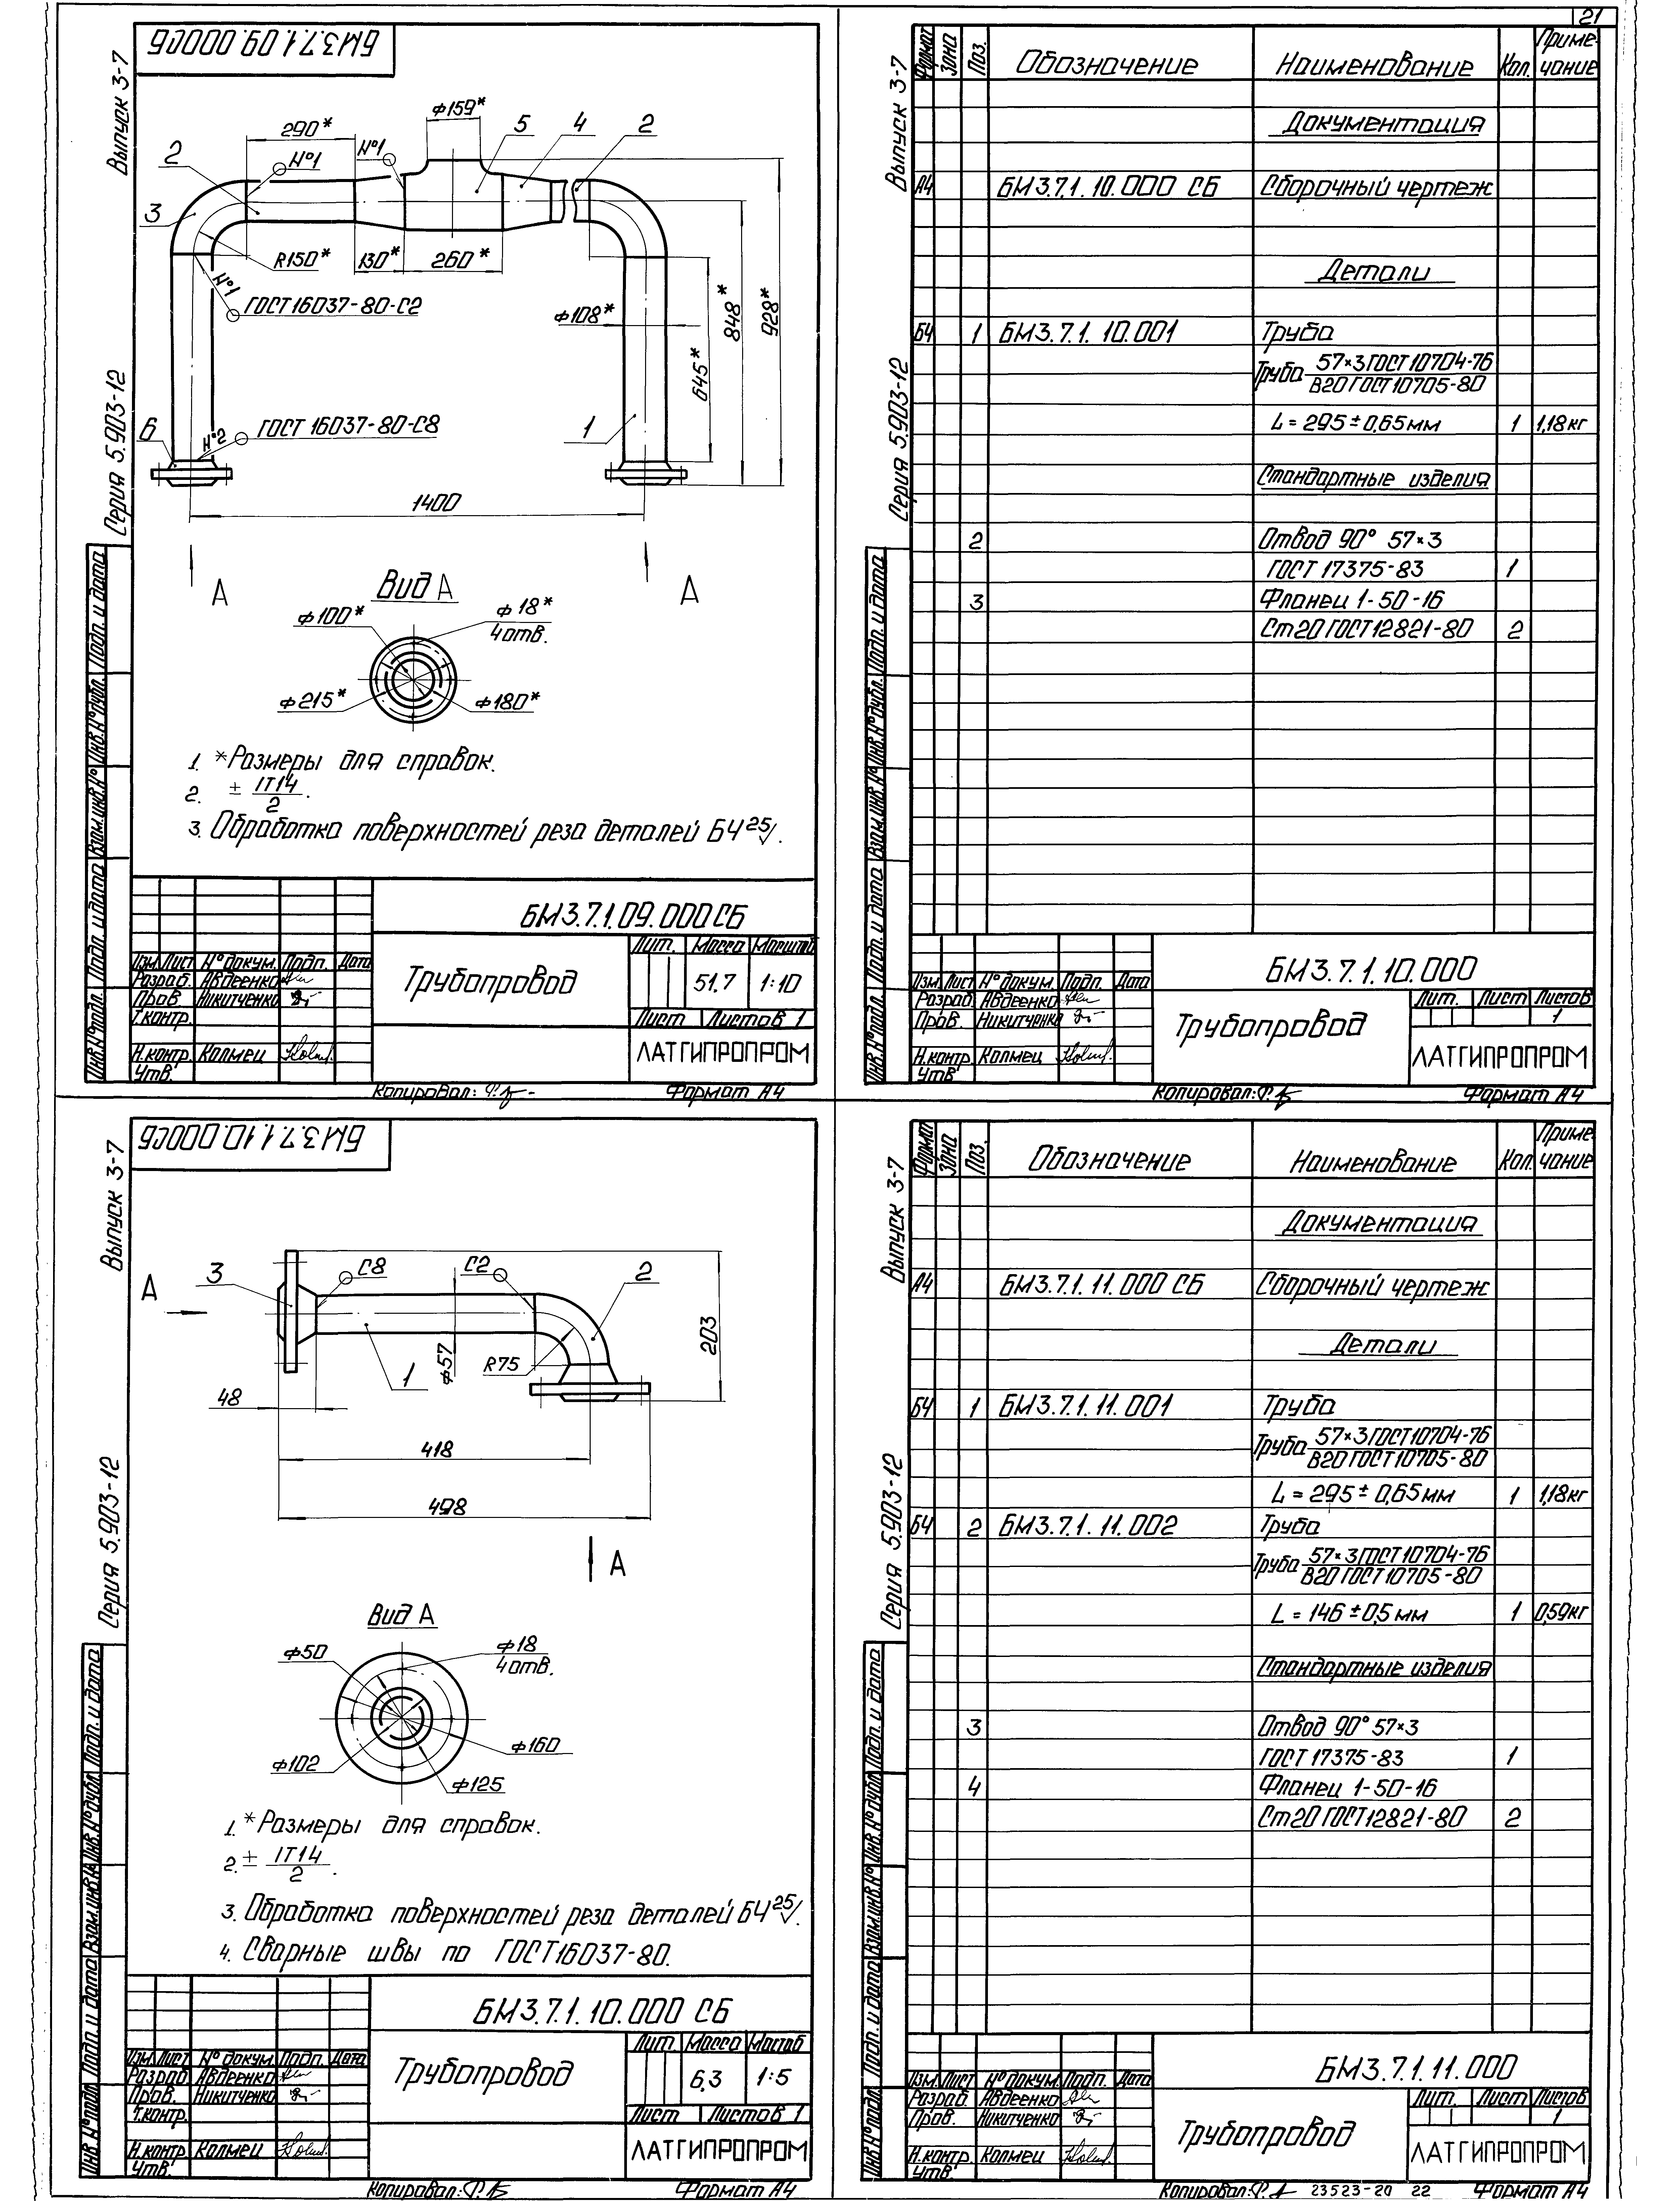 21
БМ3.7.1.09.000СБ
Выпуск 3-7
Серия 5.903-12
ф159*
290*
5
4
2
№1
№1
2
3
R150*
130*
260*
№1
ГОСТ 16037-80-С2
ф108*
848*
928*
645*
6
№2
ГОСТ 16037-80-С8
1
1400
А
Вид А
А
ф100*
ф18*
4отв.
ф215*
ф180*
1. *Размеры для справок.
2. ± IT14/2.
3. Обработка поверхностей реза деталей БЧ 25.
БМ3.7.1.09.000СБ
Изм Лист № докум. Подп. Дата
Разраб. Авдеенко
Пров Никитченко
Т.контр.
Н.контр. Колмец
Утв.
Трубопровод
Лит. Масса Масштаб
51,7 1:10
Лист Листов 1
ЛАТГИПРОПРОМ
Копировал:
Формат А4
Инв.№подл. Подп. и дата Взам.инв.№ Инв.№дубл. Подп. и дата
Выпуск 3-7
Серия 5.903-12
Формат Зона Поз. Обозначение Наименование Кол. Приме-
чание
Документация
А4 БМ3.7.1.10.000 СБ Сборочный чертеж
Детали
БЧ 1 БМ3.7.1.10.001 Труба
Труба 57×3 ГОСТ 10704-76
В20 ГОСТ 10705-80
L = 295 ± 0,65 мм 1 1,18 кг
Стандартные изделия
2 Отвод 90° 57×3
ГОСТ 17375-83 1
3 Фланец 1-50-16
Ст20 ГОСТ 12821-80 2
БМ3.7.1.10.000
Изм. Лист № докум. Подп. Дата
Разраб Авдеенко
Пров. Никитченко
Н.контр. Колмец
Утв
Трубопровод
Лит. Лист Листов
1
ЛАТГИПРОПРОМ
Копировал:
Формат А4
Инв.№подл. Подп. и дата Взам.инв.№ Инв.№дубл. Подп. и дата
БМ3.7.1.10.000СБ
Выпуск 3-7
Серия 5.903-12
А
3
С8
С2
2
ф57
R75
203
1
48
418
498
А
Вид А
ф50
ф18
4отв.
ф102
ф160
ф125
1. *Размеры для справок.
2. ± IT14/2.
3. Обработка поверхностей реза деталей БЧ 25.
4. Сварные швы по ГОСТ 16037-80.
БМ3.7.1.10.000 СБ
Изм Лист № докум. Подп. Дата
Разраб Авдеенко
Пров. Никитченко
Т.контр.
Н.контр Колмец
Утв.
Трубопровод
Лит. Масса Мастаб
6,3 1:5
Лист Листов 1
ЛАТГИПРОПРОМ
Копировал:
Формат А4
Инв №подл. Подп. и дата Взам.инв.№ Инв.№дубл. Подп. и дата
Выпуск 3-7
Серия 5.903-12
Формат Зона Поз. Обозначение Наименование Кол. Приме-
чание
Документация
А4 БМ3.7.1.11.000 СБ Сборочный чертеж
Детали
БЧ 1 БМ3.7.1.11.001 Труба
Труба 57×3 ГОСТ 10704-76
В20 ГОСТ 10705-80
L = 295 ± 0,65 мм 1 1,18кг
БЧ 2 БМ3.7.1.11.002 Труба
Труба 57×3 ГОСТ 10704-76
В20 ГОСТ 10705-80
L = 146 ± 0,5 мм 1 0,59кг
Стандартные изделия
3 Отвод 90° 57×3
ГОСТ 17375-83 1
4 Фланец 1-50-16
Ст20 ГОСТ 12821-80 2
БМ3.7.1.11.000
Изм. Лист № докум. Подп. Дата
Разраб. Авдеенко
Пров. Никитченко
Н.контр. Колмец
Утв.
Трубопровод
Лит. Лист Листов
1
ЛАТГИПРОПРОМ
Копировал: 23523-20 22 Формат А4
Инв.№подл. Подп. и дата Взам.инв.№ Инв.№дубл. Подп. и дата